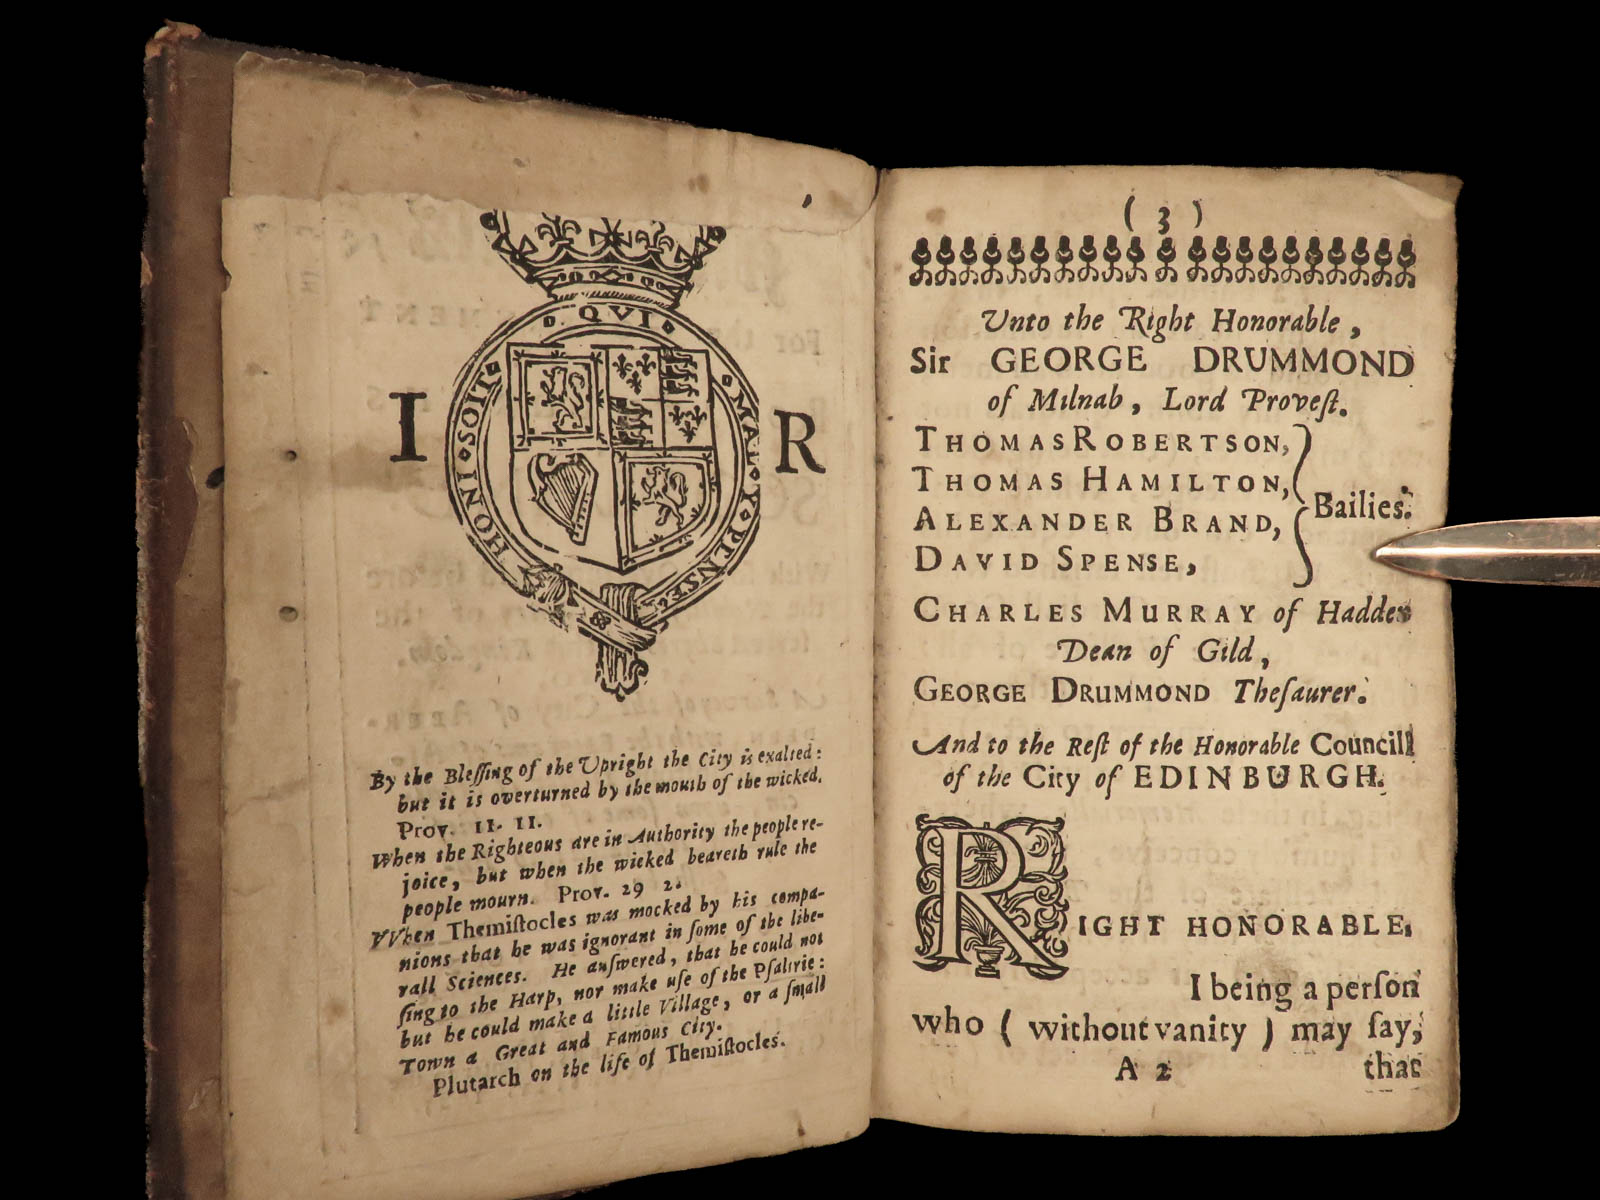 I R
HONI · SOIT · QVI · MAL · Y · PENSE
By the Bleſſing of the Upright the City is exalted:
but it is overturned by the mouth of the wicked.
Prov. 11. 11.
When the Righteous are in Authority the people re-
joice, but when the wicked beareth rule the
people mourn. Prov. 29 2.
VVhen Themiſtocles was mocked by his compa-
nions that he was ignorant in ſome of the libe-
rall Sciences. He anſwered, that he could not
ſing to the Harp, nor make uſe of the Pſaltrie:
but he could make a little Village, or a ſmall
Town a Great and Famous City.
Plutarch on the life of Themiſtocles.
( 3 )
Unto the Right Honorable,
Sir GEORGE DRUMMOND
of Milnab, Lord Proveſt.
THOMAS ROBERTSON,
THOMAS HAMILTON,
ALEXANDER BRAND,
DAVID SPENSE,
Bailies.
CHARLES MURRAY of Hadden
Dean of Gild,
GEORGE DRUMMOND Theſaurer.
And to the Reſt of the Honorable Councill
of the City of EDINBURGH.
RIGHT HONORABLE,
I being a perſon
who ( without vanity ) may ſay,
A 2 that